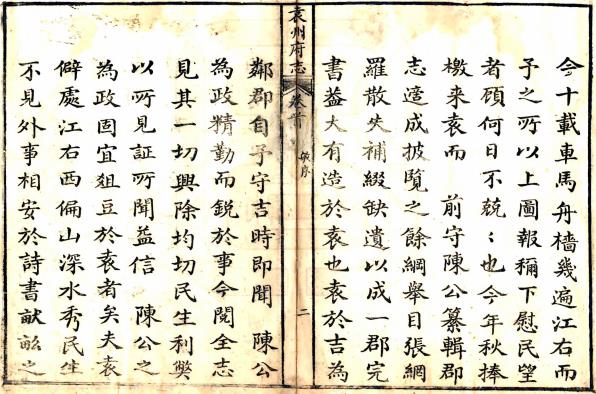 今十載車馬舟檣幾遍江右而
予之所以上圖報稱下慰民望
者顧何日不兢〻也今年秋捧
檄来袁而　前守陳公纂輯郡
志適成披覽之餘綱舉目張網
羅散失補綴缺遺以成一郡完
書葢大有造於袁也袁於吉為
袁州府志
卷首
序
二
鄰郡自予守吉時即聞　陳公
為政精勤而銳於事今閱全志
見其一切興除均切民生利獘
以所見証所聞益信　陳公之
為政固宜俎豆於袁者矣夫袁
僻處江右西偏山深水秀民生
不見外事相安於詩書畎畝之